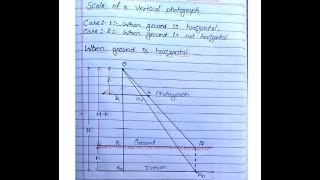 Scale of a Vertical photograph
Case:-1:- When ground is horizontal.
Case:-2:- When ground is not horizontal
When ground is horizontal
O
f
k
Photograph
H-h
H
Ground
A
h
Datum